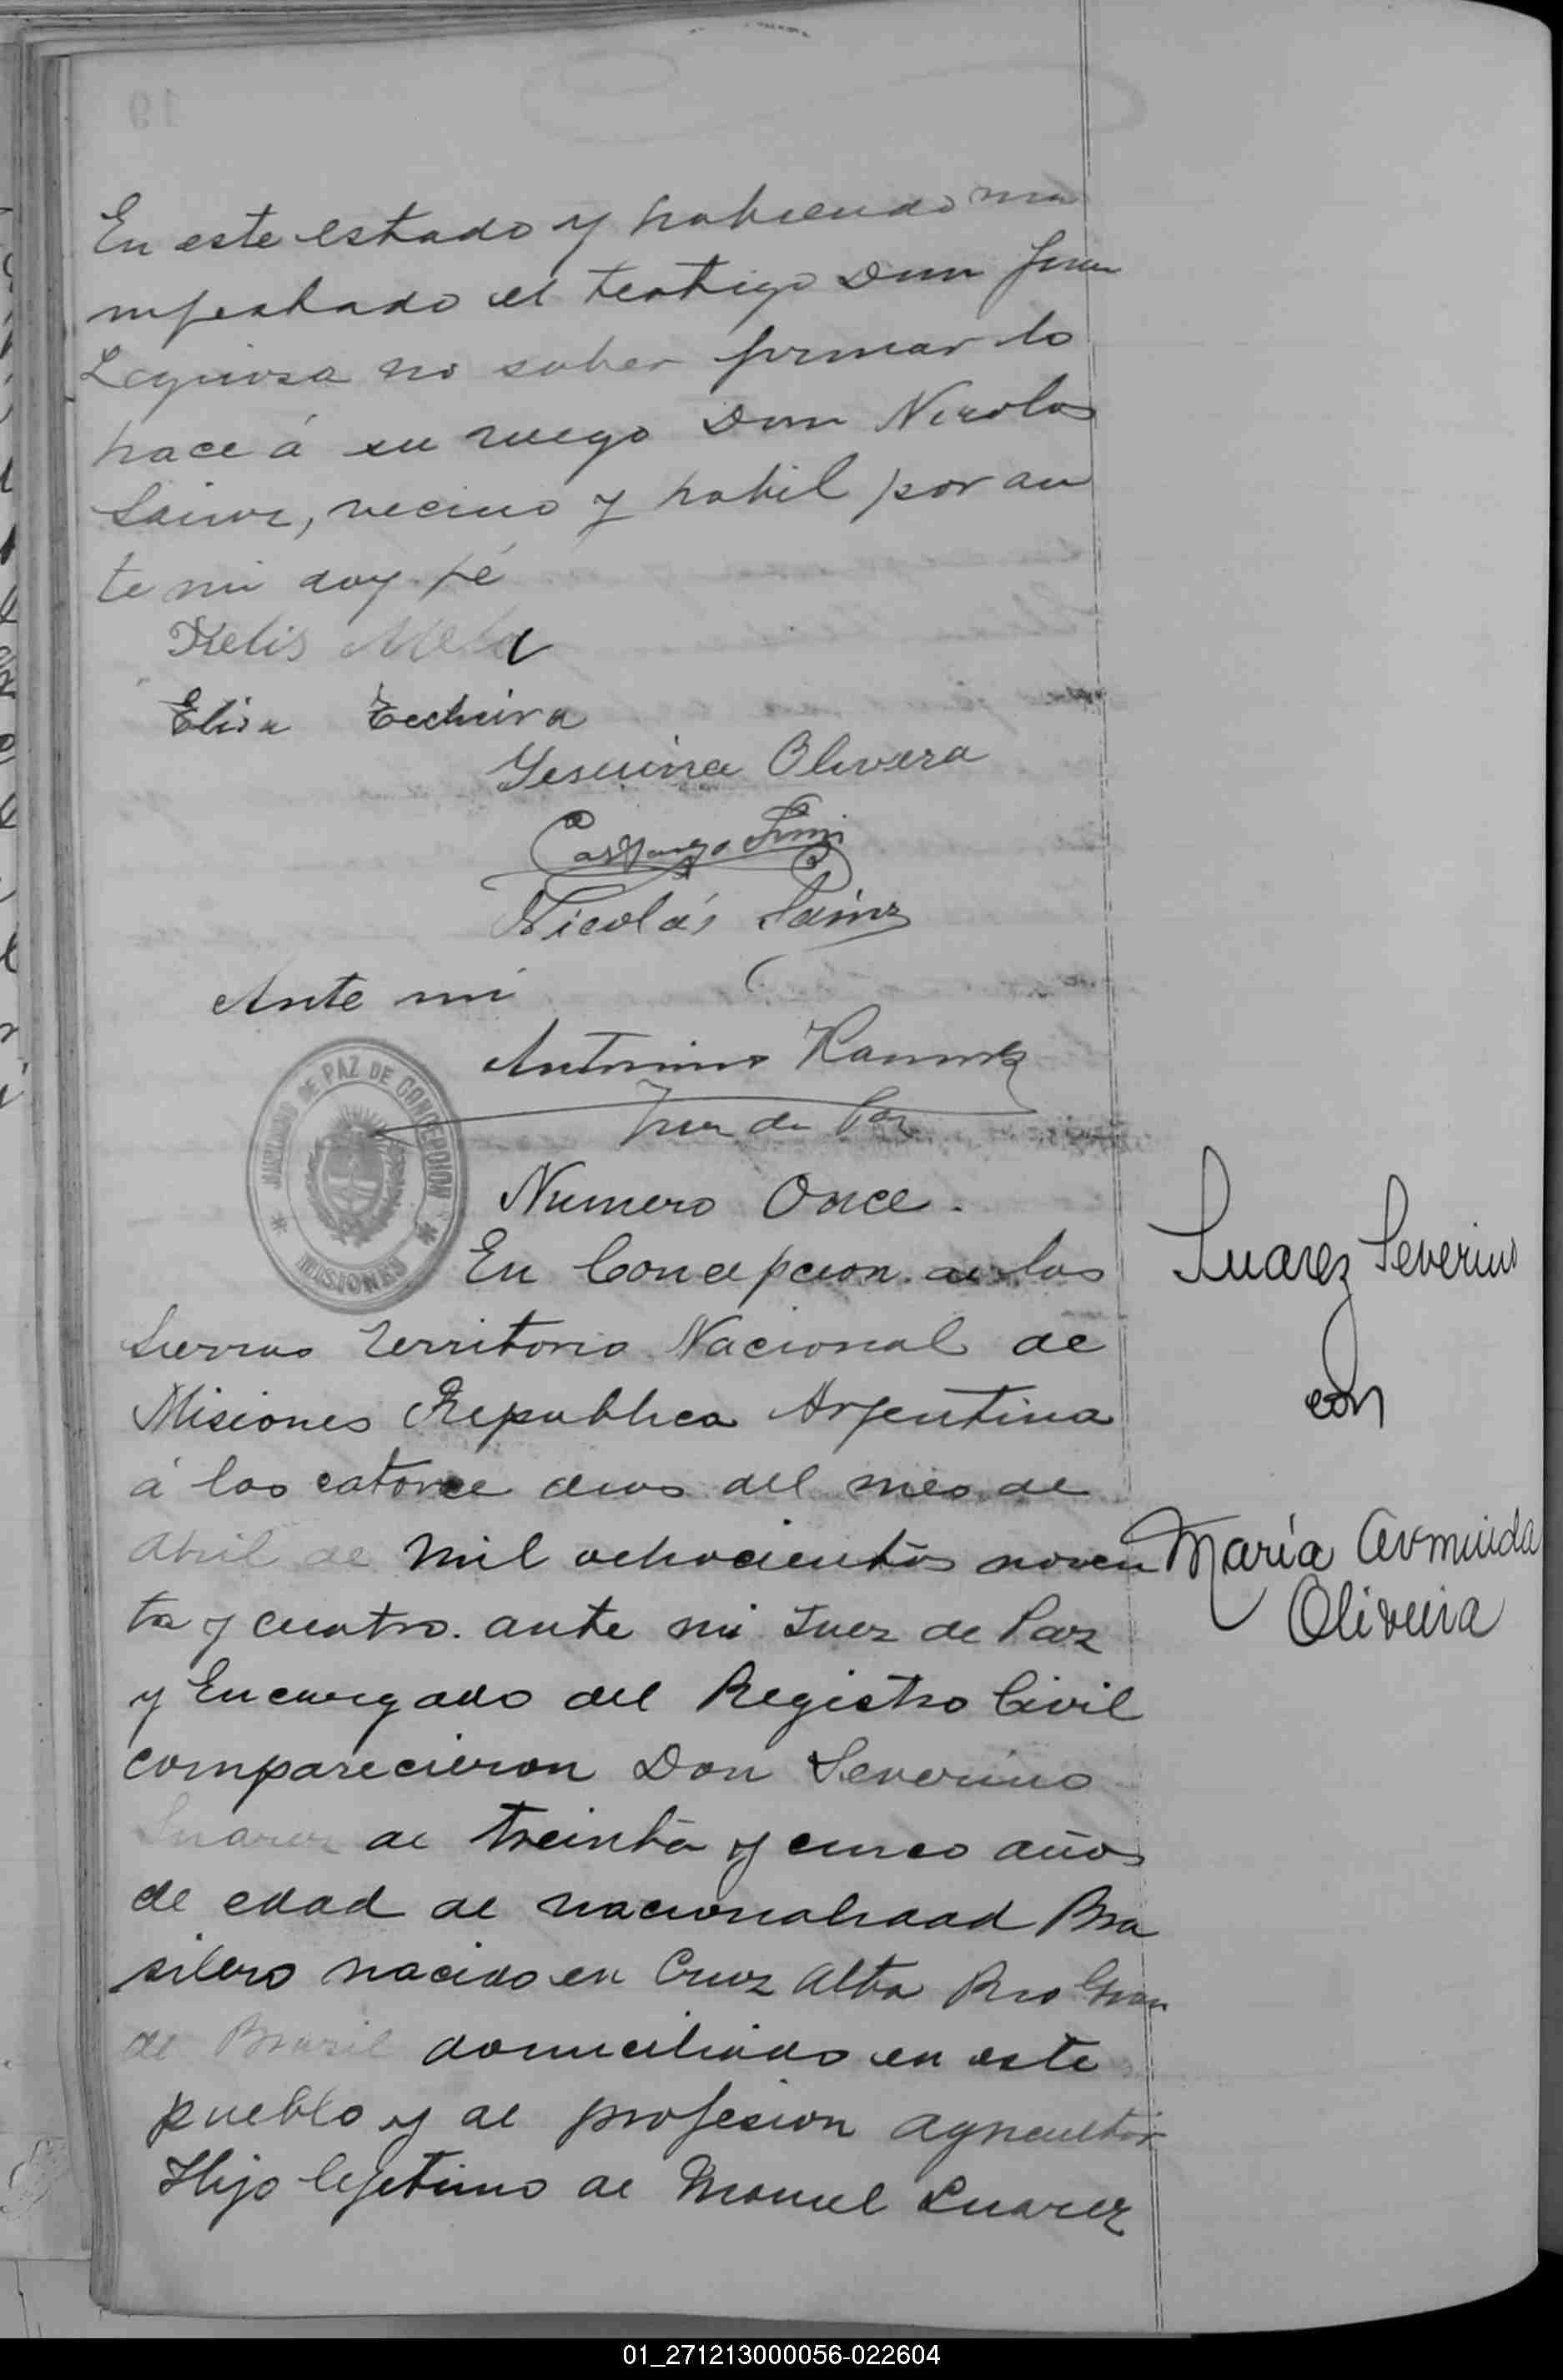 En este estado y habiendo ma
nifestado el testigo Don Juan
Leguisa no saber firmar lo
hace á su ruego Don Nicolas
Sainz, vecino y habil por an
te mi doy fé
Felis Mela
Elisa Techeira
Yesuina Olivera
Nicolás Sainz
Ante mi
Antonino Ramirez
Juez de Paz
JUZGADO DE PAZ DE CONCEPCION
MISIONES
Numero Once.
En Concepcion de las
Sierras Territorio Nacional de
Misiones Republica Argentina
á los catorce dias del mes de
Abril de mil ochocientos noven
ta y cuatro. ante mi Juez de Paz
y Encargado del Registro Civil
comparecieron Don Severino
Suarez de treinta y cinco años
de edad de nacionalidad Bra
silero nacido en Cruz Alta Rio Gran
de Brasil domiciliado en este
pueblo y de profesion agricultor
Hijo lejetimo de Manuel Suarez
Suarez Severino
con
María Arminda
Oliveira
01_271213000056-022604